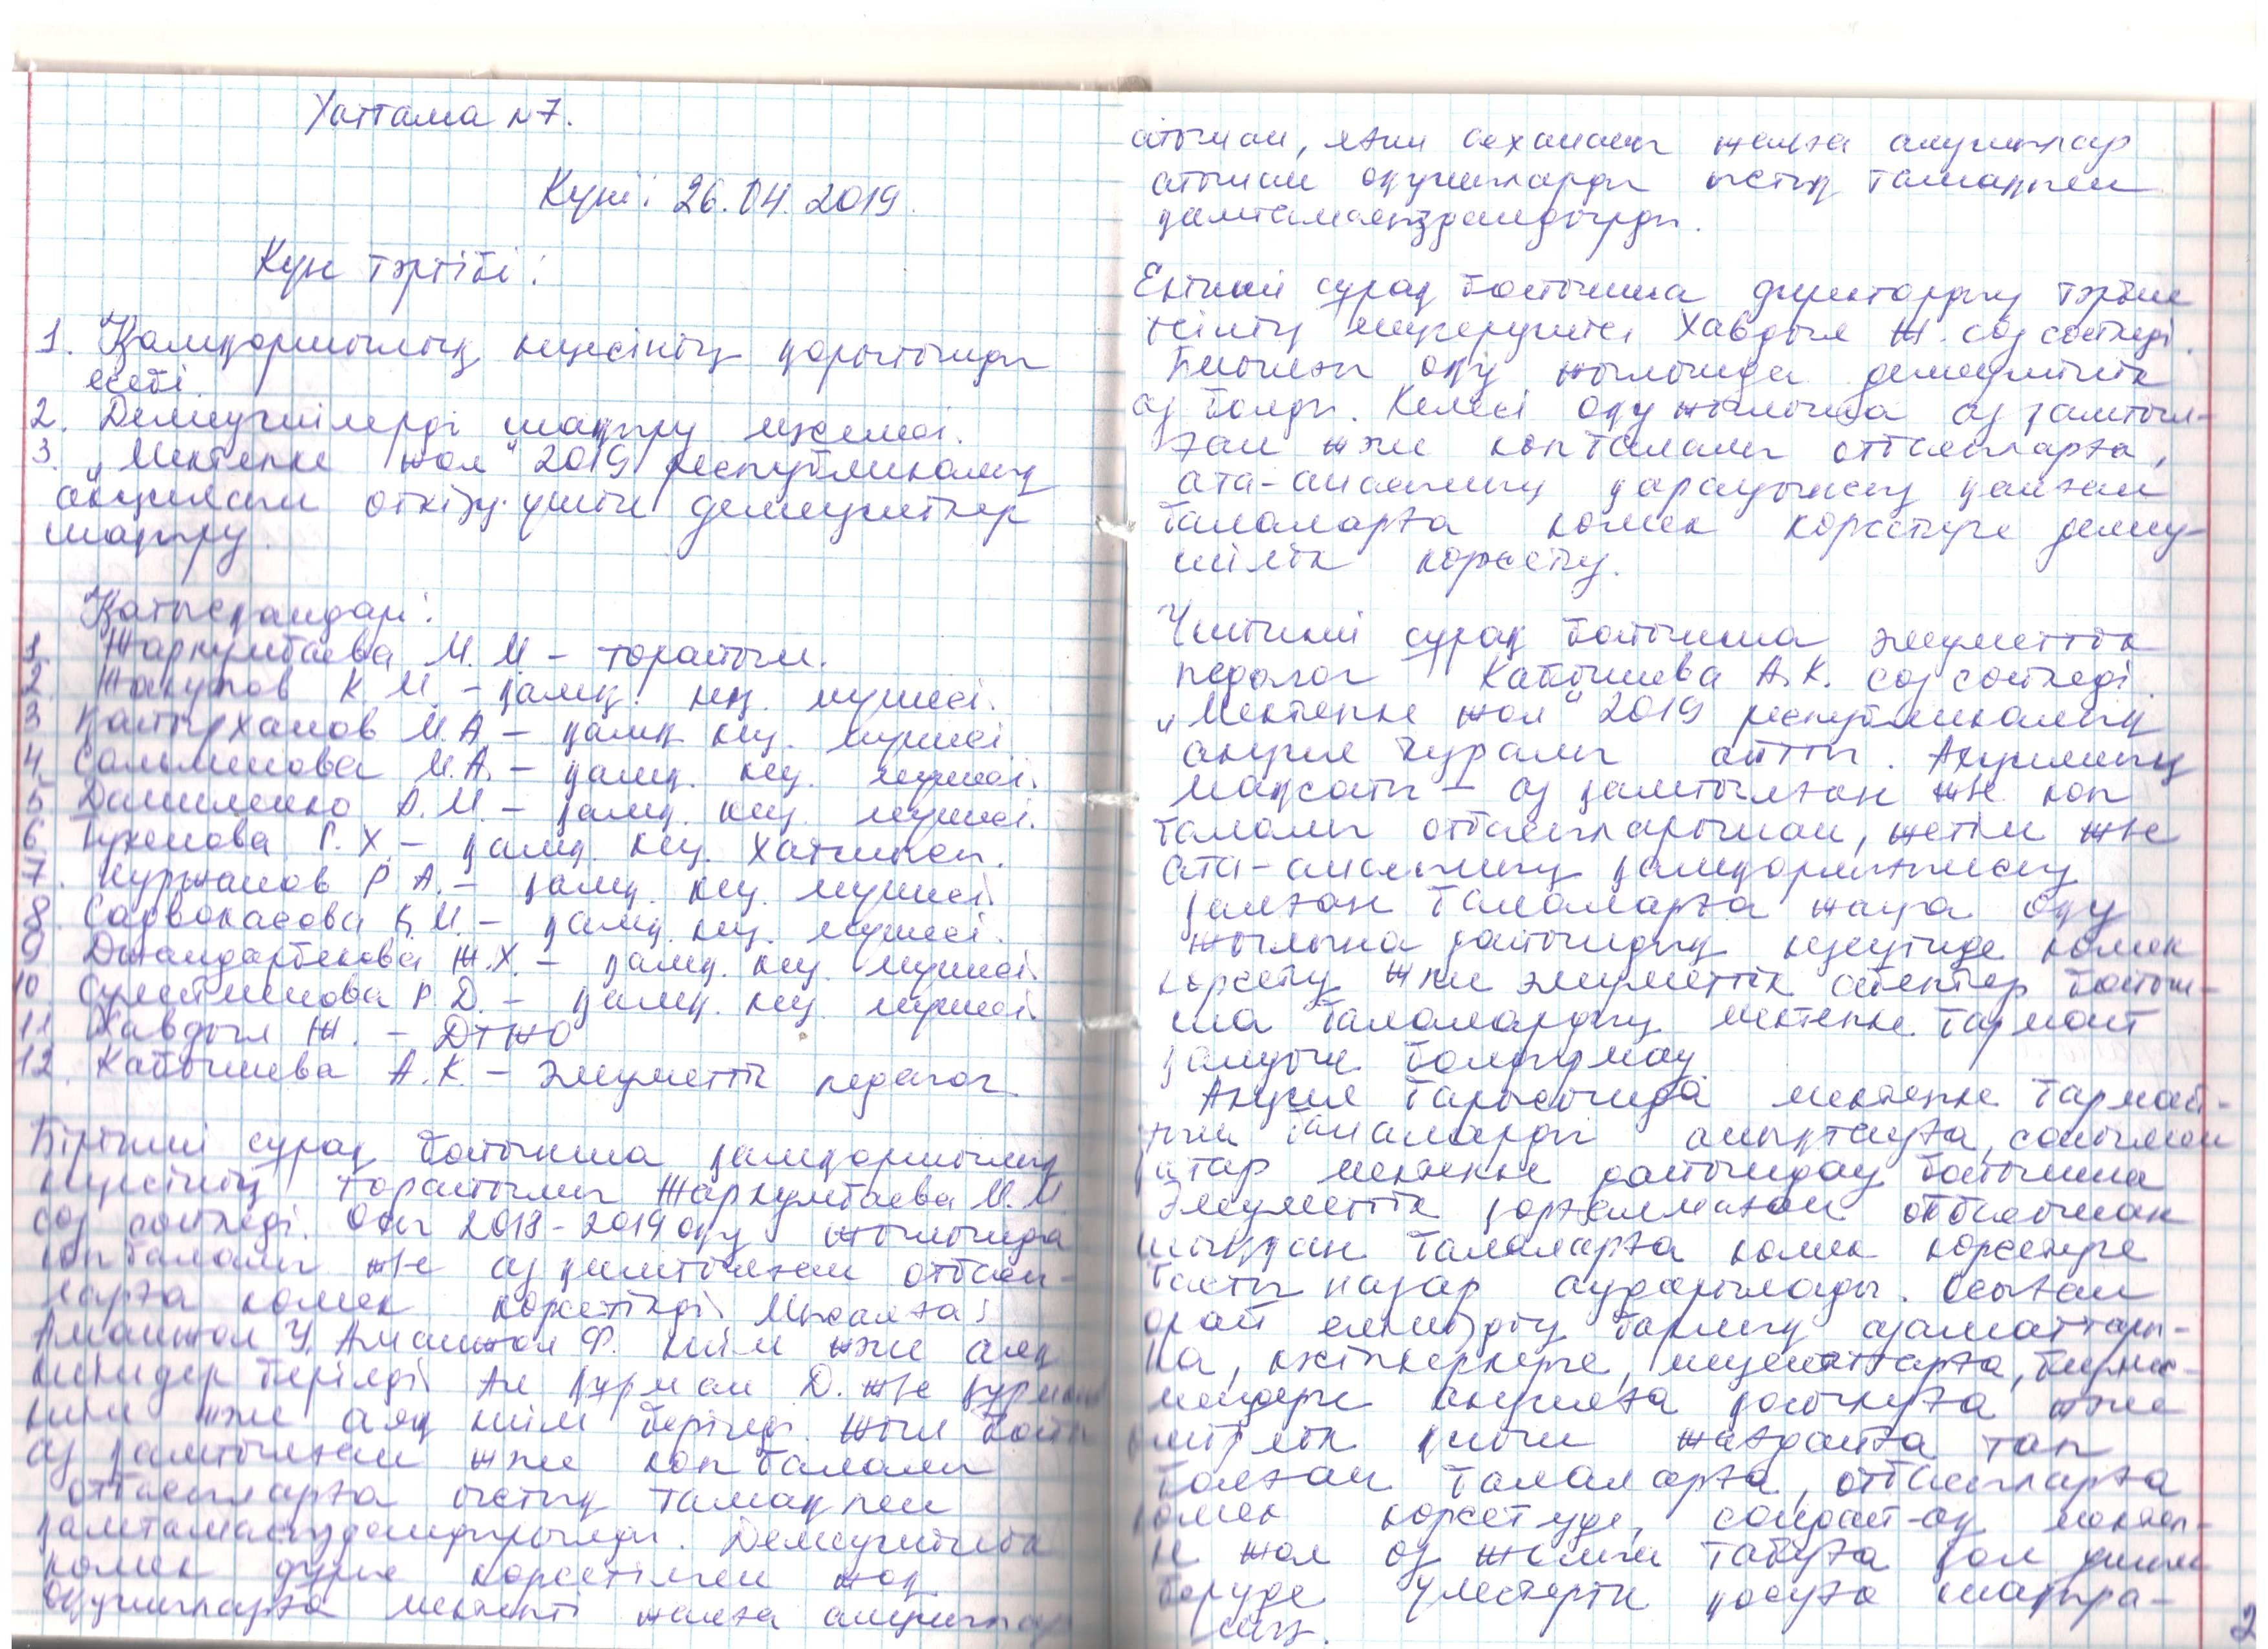 Хаттама №7.
Күні: 26.04.2019.
Күн тәртібі:
1. Қамқоршылық кеңесінің қорытынды
есебі.
2. Демеушілерді шақыру мәселесі.
3. „Мектепке жол" 2019 республикалық
акциясын өткізу үшін демеушілер
шақыру.
Қатысқандар:
1. Жаркумбаева М.М – төрайым.
2. Жакупов К.М. – қамқ. кең. мүшесі.
3. Қайырханов М.А – қамқ. кең. мүшесі
4. Сальменова М.А. – қамқ. кең. мүшесі.
5. Даниленко О.М. – қамқ. кең. мүшесі.
6. Букенова Г.Х. – қамқ. кең. хатшысы.
7. Нуржанов Р.А. – қамқ. кең. мүшесі.
8. Садвокасова К.М. – қамқ. кең. мүшесі.
9. Джандарбекова Ж.Х. – қамқ. кең. мүшесі.
10. Сулейменова Р.Д. – қамқ. кең. мүшесі.
11. Хавдыл Ж. – ДТЖО
12. Кабышева А.К. – Әлеуметтік педагог
Бірінші сұрақ бойынша қамқоршылық
кеңесінің төрайымы Жаркумбаева М.М.
сөз сөйледі. Осы 2018-2019 оқу жылында
көпбалалы ж/е аз қамтылған отбасы-
ларға көмек көрсетілді. Мысалға:
Аманжол У, Аманжол Ф. киім және аяқ
киімдер берілді. Ал Құрман Д. ж/е Құрман
киім және аяқ киім берілді. Жыл бойы
аз қамтылған және көп балалы
отбасыларға ыстық тамақпен
қамтамасыздандырылды. Демеушілік
көмек дұрыс көрсетілген жоқ
оқушыларға мектепті жалға алушылар
атынан, яғни асхананы жалға алушылар
атынан оқушыларды ыстық тамақпен
қамтамасыздандырды.
Екінші сұрақ бойынша директордың тәрбие
ісінің меңгерушісі Хавдыл Ж. сөз сөйледі.
Биылғы оқу жылында демеушілік
аз болды. Келесі оқу жылына аз қамтыл-
ған және көпбалалы отбасыларға,
ата-анасының қарауынсыз қалған
балаларға көмек көрсетуге демеу-
шілік көрсету.
Үшінші сұрақ бойынша әлеуметтік
педагог Кабышева А.К. сөз сөйледі.
„Мектепке жол" 2019 республикалық
акция туралы айтты. Акцияның
мақсаты – аз қамтылған ж/е көп
балалы отбасыларынан, жетім ж/е
ата-анасының қамқорлығынсыз
қалған балаларға жаңа оқу
жылына дайындық кезеңінде көмек
көрсету және әлеуметтік себептер бойын-
ша балалардың мектепке бармай
қалуын болдырмау
Акция барысында мектепке бармай-
тын балаларды анықтауға, сонымен
қатар мектепке дайындау бойынша
Әлеуметтік қорғалмаған отбасынан
шыққан балаларға көмек көрсетуге
басты назар аударылады. Осыған
орай еліміздің барлық азаматтары-
на, кәсіпкерлерге, меценаттарға, бизнес-
мендерге акцияға қосылуға және
өмірлік қиын жағдайға тап
болған балаларға, отбасыларға
көмек көрсетуде, сондай-ақ мектеп-
ке жол өз жолын табуға қол ұшын
беруде үлестерін қосуға шақыра-
мыз.
2